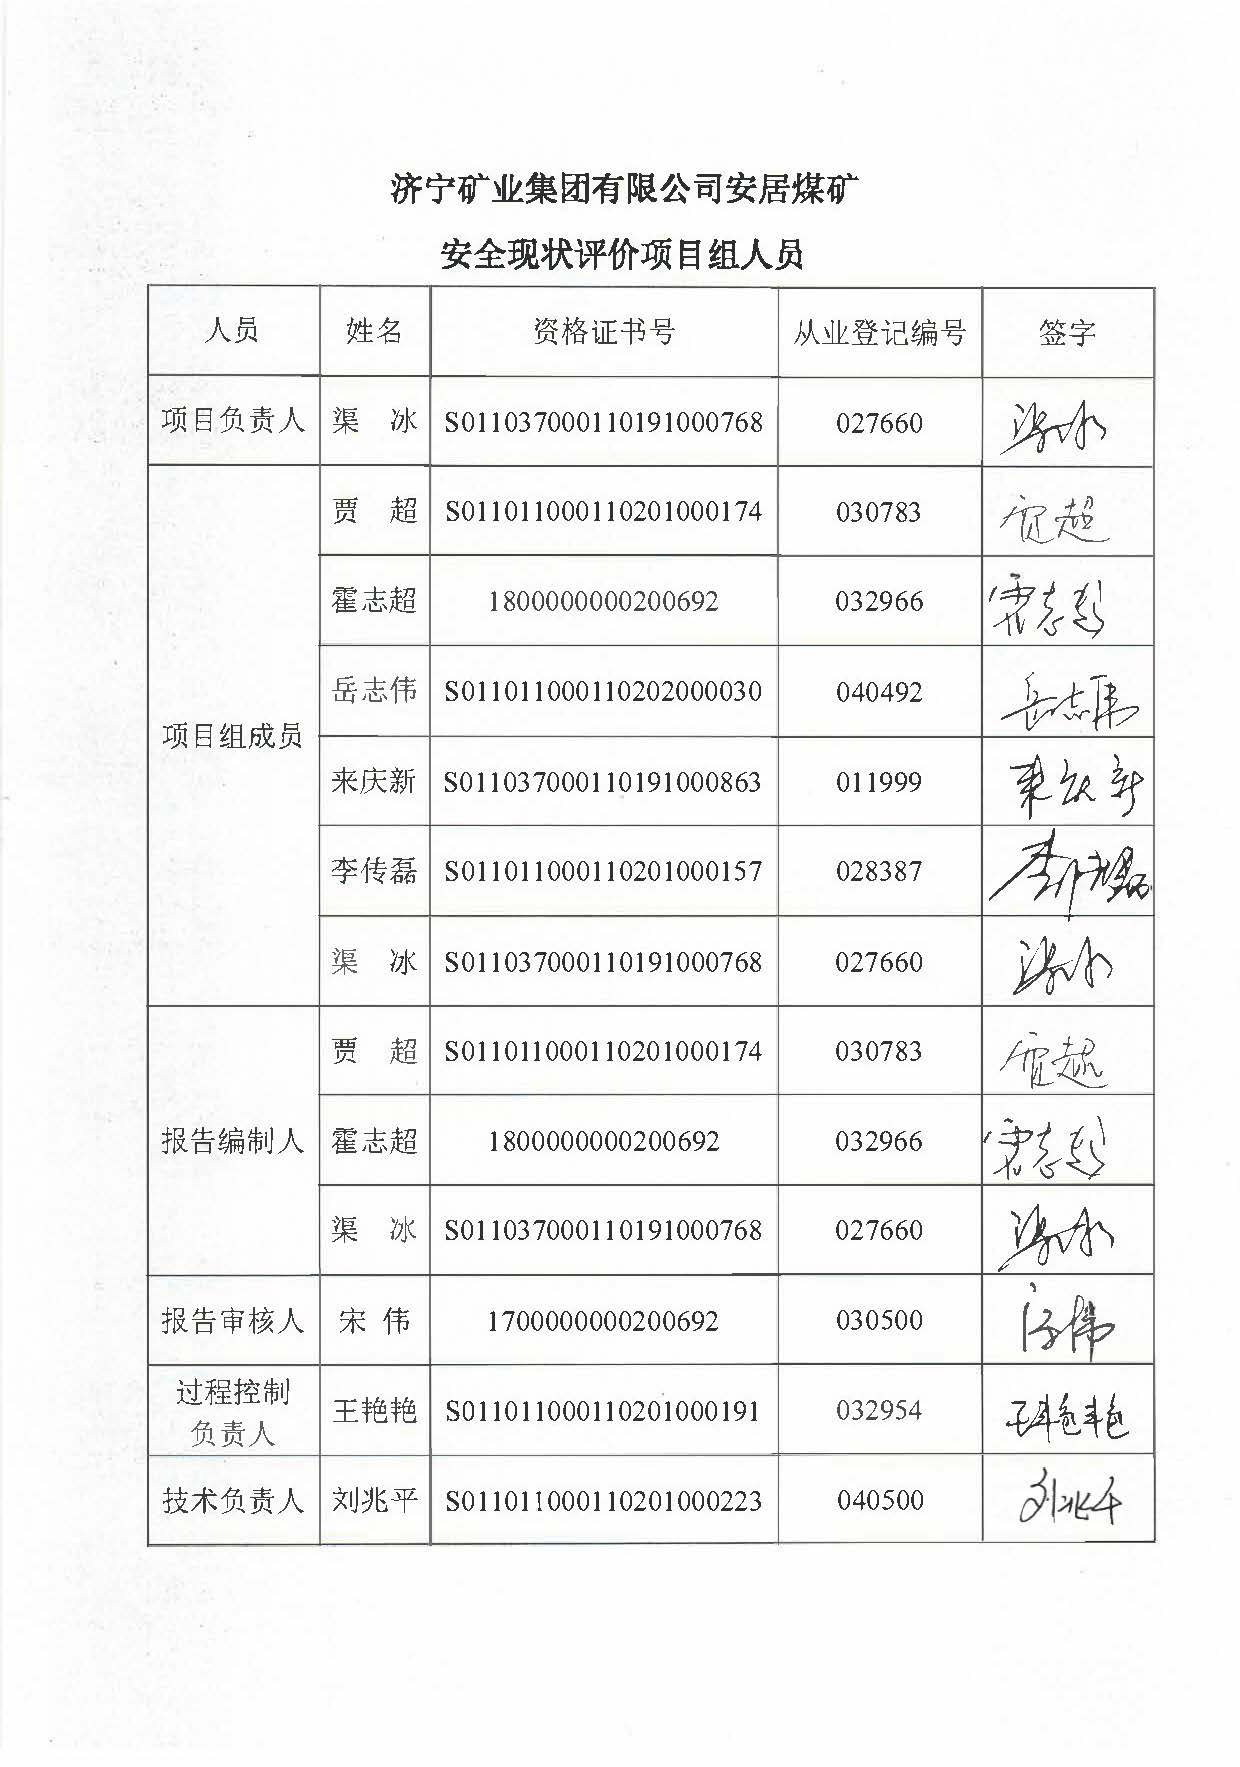 济宁矿业集团有限公司安居煤矿
安全现状评价项目组人员
人员 姓名 资格证书号 从业登记编号 签字
项目负责人 渠 冰 S011037000110191000768 027660 渠冰
项目组成员 贾 超 S011011000110201000174 030783 贾超
霍志超 1800000000200692 032966 霍志超
岳志伟 S011011000110202000030 040492 岳志伟
来庆新 S011037000110191000863 011999 来庆新
李传磊 S011011000110201000157 028387 李传磊
渠 冰 S011037000110191000768 027660 渠冰
报告编制人 贾 超 S011011000110201000174 030783 贾超
霍志超 1800000000200692 032966 霍志超
渠 冰 S011037000110191000768 027660 渠冰
报告审核人 宋 伟 1700000000200692 030500 宋伟
过程控制
负责人 王艳艳 S011011000110201000191 032954 王艳艳
技术负责人 刘兆平 S011011000110201000223 040500 刘兆平